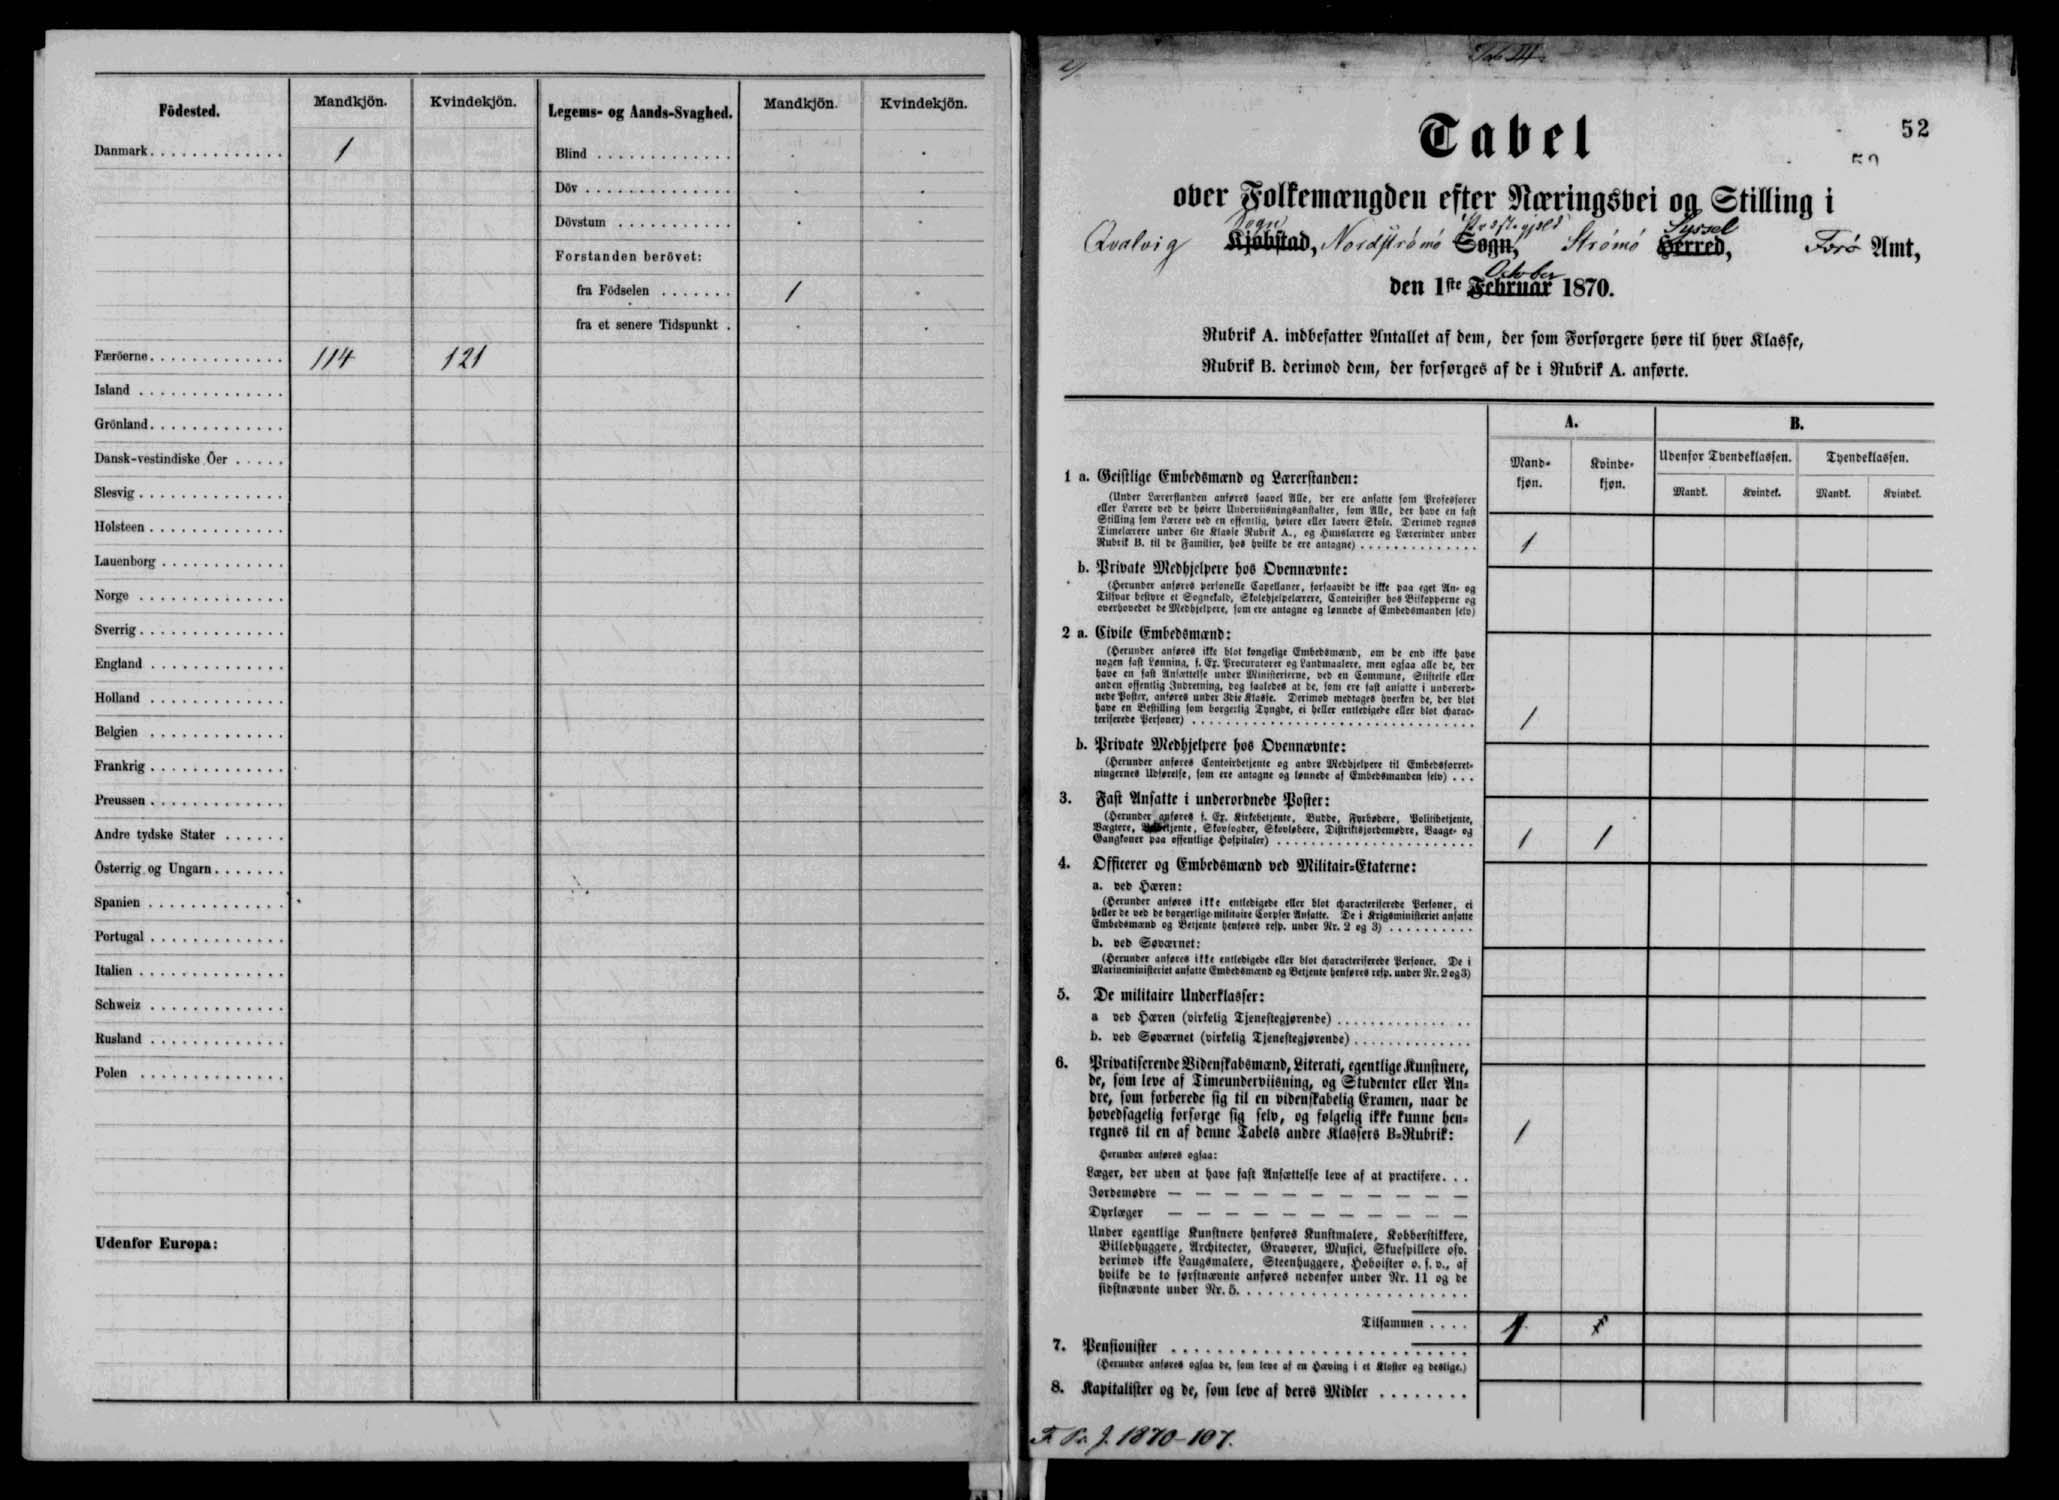 Födested.
Mandkjön.
Kvindekjön.
Legems- og Aands-Svaghed.
Mandkjön.
Kvindekjön.
Danmark
1
Blind
Döv
Dövstum
Forstanden berövet:
fra Födselen
1
fra et senere Tidspunkt
Færöerne
114
121
Island
Grönland
Dansk-vestindiske Öer
Slesvig
Holsteen
Lauenborg
Norge
Sverrig
England
Holland
Belgien
Frankrig
Preussen
Andre tydske Stater
Österrig og Ungarn
Spanien
Portugal
Italien
Schweiz
Rusland
Polen
Udenfor Europa:
Tab III.
52
Tabel
over Folkemængden efter Næringsvei og Stilling i
Sogn Præstegjeld Syssel
Qvalvig Kjøbstad, Nordstrømø Sogn, Strømø Herred, Færø Amt,
October
den 1ste Februar 1870.
Rubrik A. indbefatter Antallet af dem, der som Forsørgere høre til hver Klasse,
Rubrik B. derimod dem, der forsørges af de i Rubrik A. anførte.
A.
B.
Mand-
kjøn.
Kvinde-
kjøn.
Udenfor Tyendeklassen.
Tyendeklassen.
Mandk.
Kvindek.
Mandk.
Kvindek.
1 a. Geistlige Embedsmænd og Lærerstanden:
(Under Lærerstanden anføres saavel Alle, der ere ansatte som Professorer
eller Lærere ved de høiere Underviisningsanstalter, som Alle, der have en fast
Stilling som Lærere ved en offentlig, høiere eller lavere Skole. Derimod regnes
Timelærere under 6te Klasse Rubrik A., og Huuslærere og Lærerinder under
Rubrik B. til de Familier, hos hvilke de ere antagne) 1
b. Private Medhjelpere hos Ovennævnte:
(Herunder anføres personelle Capellaner, forsaavidt de ikke paa eget An- og
Tilsvar bestyre et Sognekald, Skolehjelpelærere, Contoirister hos Biskopperne og
overhovedet de Medhjelpere, som ere antagne og lønnede af Embedsmanden selv)
2 a. Civile Embedsmænd:
(Herunder anføres ikke blot kongelige Embedsmænd, om de end ikke have
nogen fast Lønning, f. Ex. Procuratorer og Landmaalere, men ogsaa alle de, der
have en fast Ansættelse under Ministerierne, ved en Commune, Stiftelse eller
anden offentlig Indretning, dog saaledes at de, som ere fast ansatte i underord-
nede Poster, anføres under 3die Klasse. Derimod medtages hverken de, der blot
have en Bestilling som borgerlig Tyngde, ei heller entledigede eller blot charac-
teriserede Personer) 1
b. Private Medhjelpere hos Ovennævnte:
(Herunder anføres Contoirbetjente og andre Medhjelpere til Embedsforret-
ningernes Udførelse, som ere antagne og lønnede af Embedsmanden selv)
3. Fast Ansatte i underordnede Poster:
(Herunder anføres f. Ex. Kirkebetjente, Budde, Fyrbødere, Politibetjente,
Vægtere, Skovfogder, Skovløbere, Distriktsjordemødre, Vaage- og
Gangkoner paa offentlige Hospitaler) 1 1
4. Officerer og Embedsmænd ved Militair-Etaterne:
a. ved Hæren:
(Herunder anføres ikke entledigede eller blot characteriserede Personer, ei
heller de ved de borgerlige militaire Corpser Ansatte. De i Krigsministeriet ansatte
Embedsmænd og Betjente henføres resp. under Nr. 2 og 3)
b. ved Søværnet:
(Herunder anføres ikke entledigede eller blot characteriserede Personer. De i
Marineministeriet ansatte Embedsmænd og Betjente henføres resp. under Nr. 2 og 3)
5. De militaire Underklasser:
a ved Hæren (virkelig Tjenestegjørende)
b. ved Søværnet (virkelig Tjenestegjørende)
6. Privatiserende Videnskabsmænd, Literati, egentlige Kunstnere,
de, som leve af Timeunderviisning, og Studenter eller An-
dre, som forberede sig til en videnskabelig Examen, naar de
hovedsagelig forsørge sig selv, og følgelig ikke kunne hen-
regnes til en af denne Tabels andre Klassers B-Rubrik: 1
Herunder anføres ogsaa:
Læger, der uden at have fast Ansættelse leve af at practisere
Jordemødre — — — — — — — — — — —
Dyrlæger — — — — — — — — — — —
Under egentlige Kunstnere henføres Kunstmalere, Kobberstikkere,
Billedhuggere, Architecter, Gravører, Musici, Skuespillere osv.
derimod ikke Laugsmalere, Steenhuggere, Hoboister o. s. v., af
hvilke de to førstnævnte anføres nedenfor under Nr. 11 og de
sidstnævnte under Nr. 5.
Tilsammen
7. Pensionister
(Herunder anføres ogsaa de, som leve af en Hæving i et Kloster og deslige.)
8. Kapitalister og de, som leve af deres Midler
F. Pr. J. 1870-107.